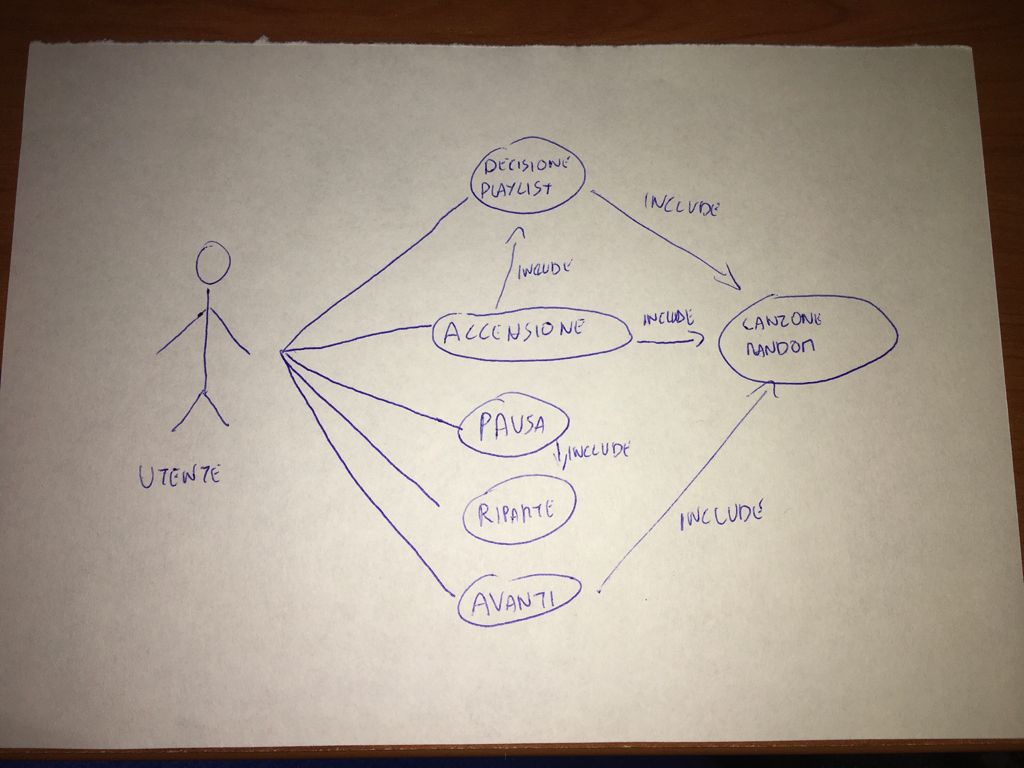 DECISIONE
PLAYLIST
INCLUDE
INCLUDE
ACCENSIONE
INCLUDE
CANZONE
RANDOM
PAUSA
INCLUDE
UTENTE
RIPARTE
INCLUDE
AVANTI